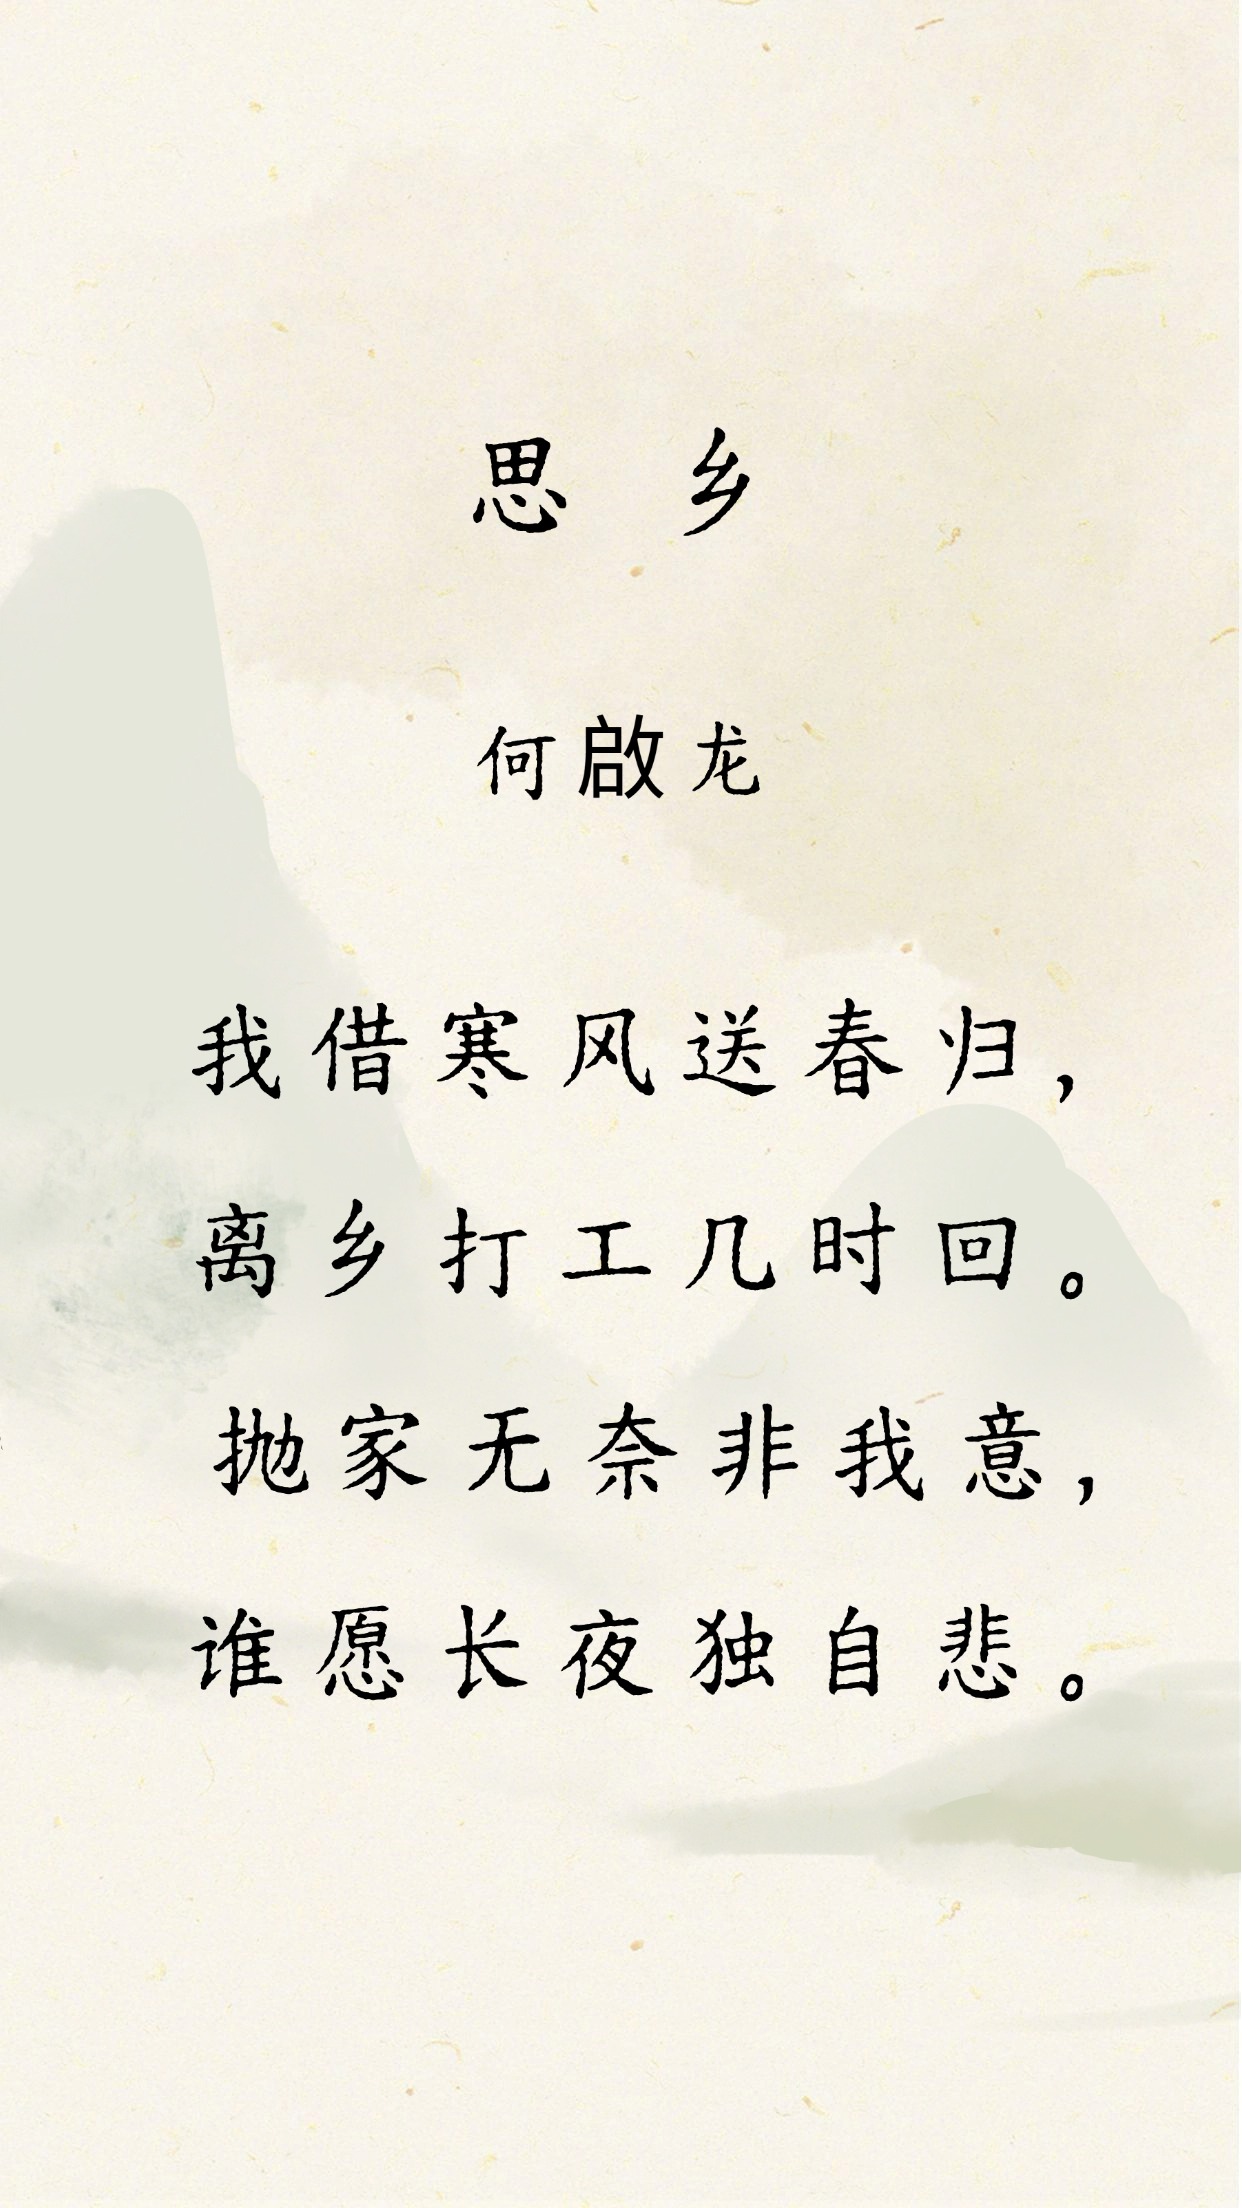 思 乡
何啟龙
我借寒风送春归，
离乡打工几时回。
抛家无奈非我意，
谁愿长夜独自悲。